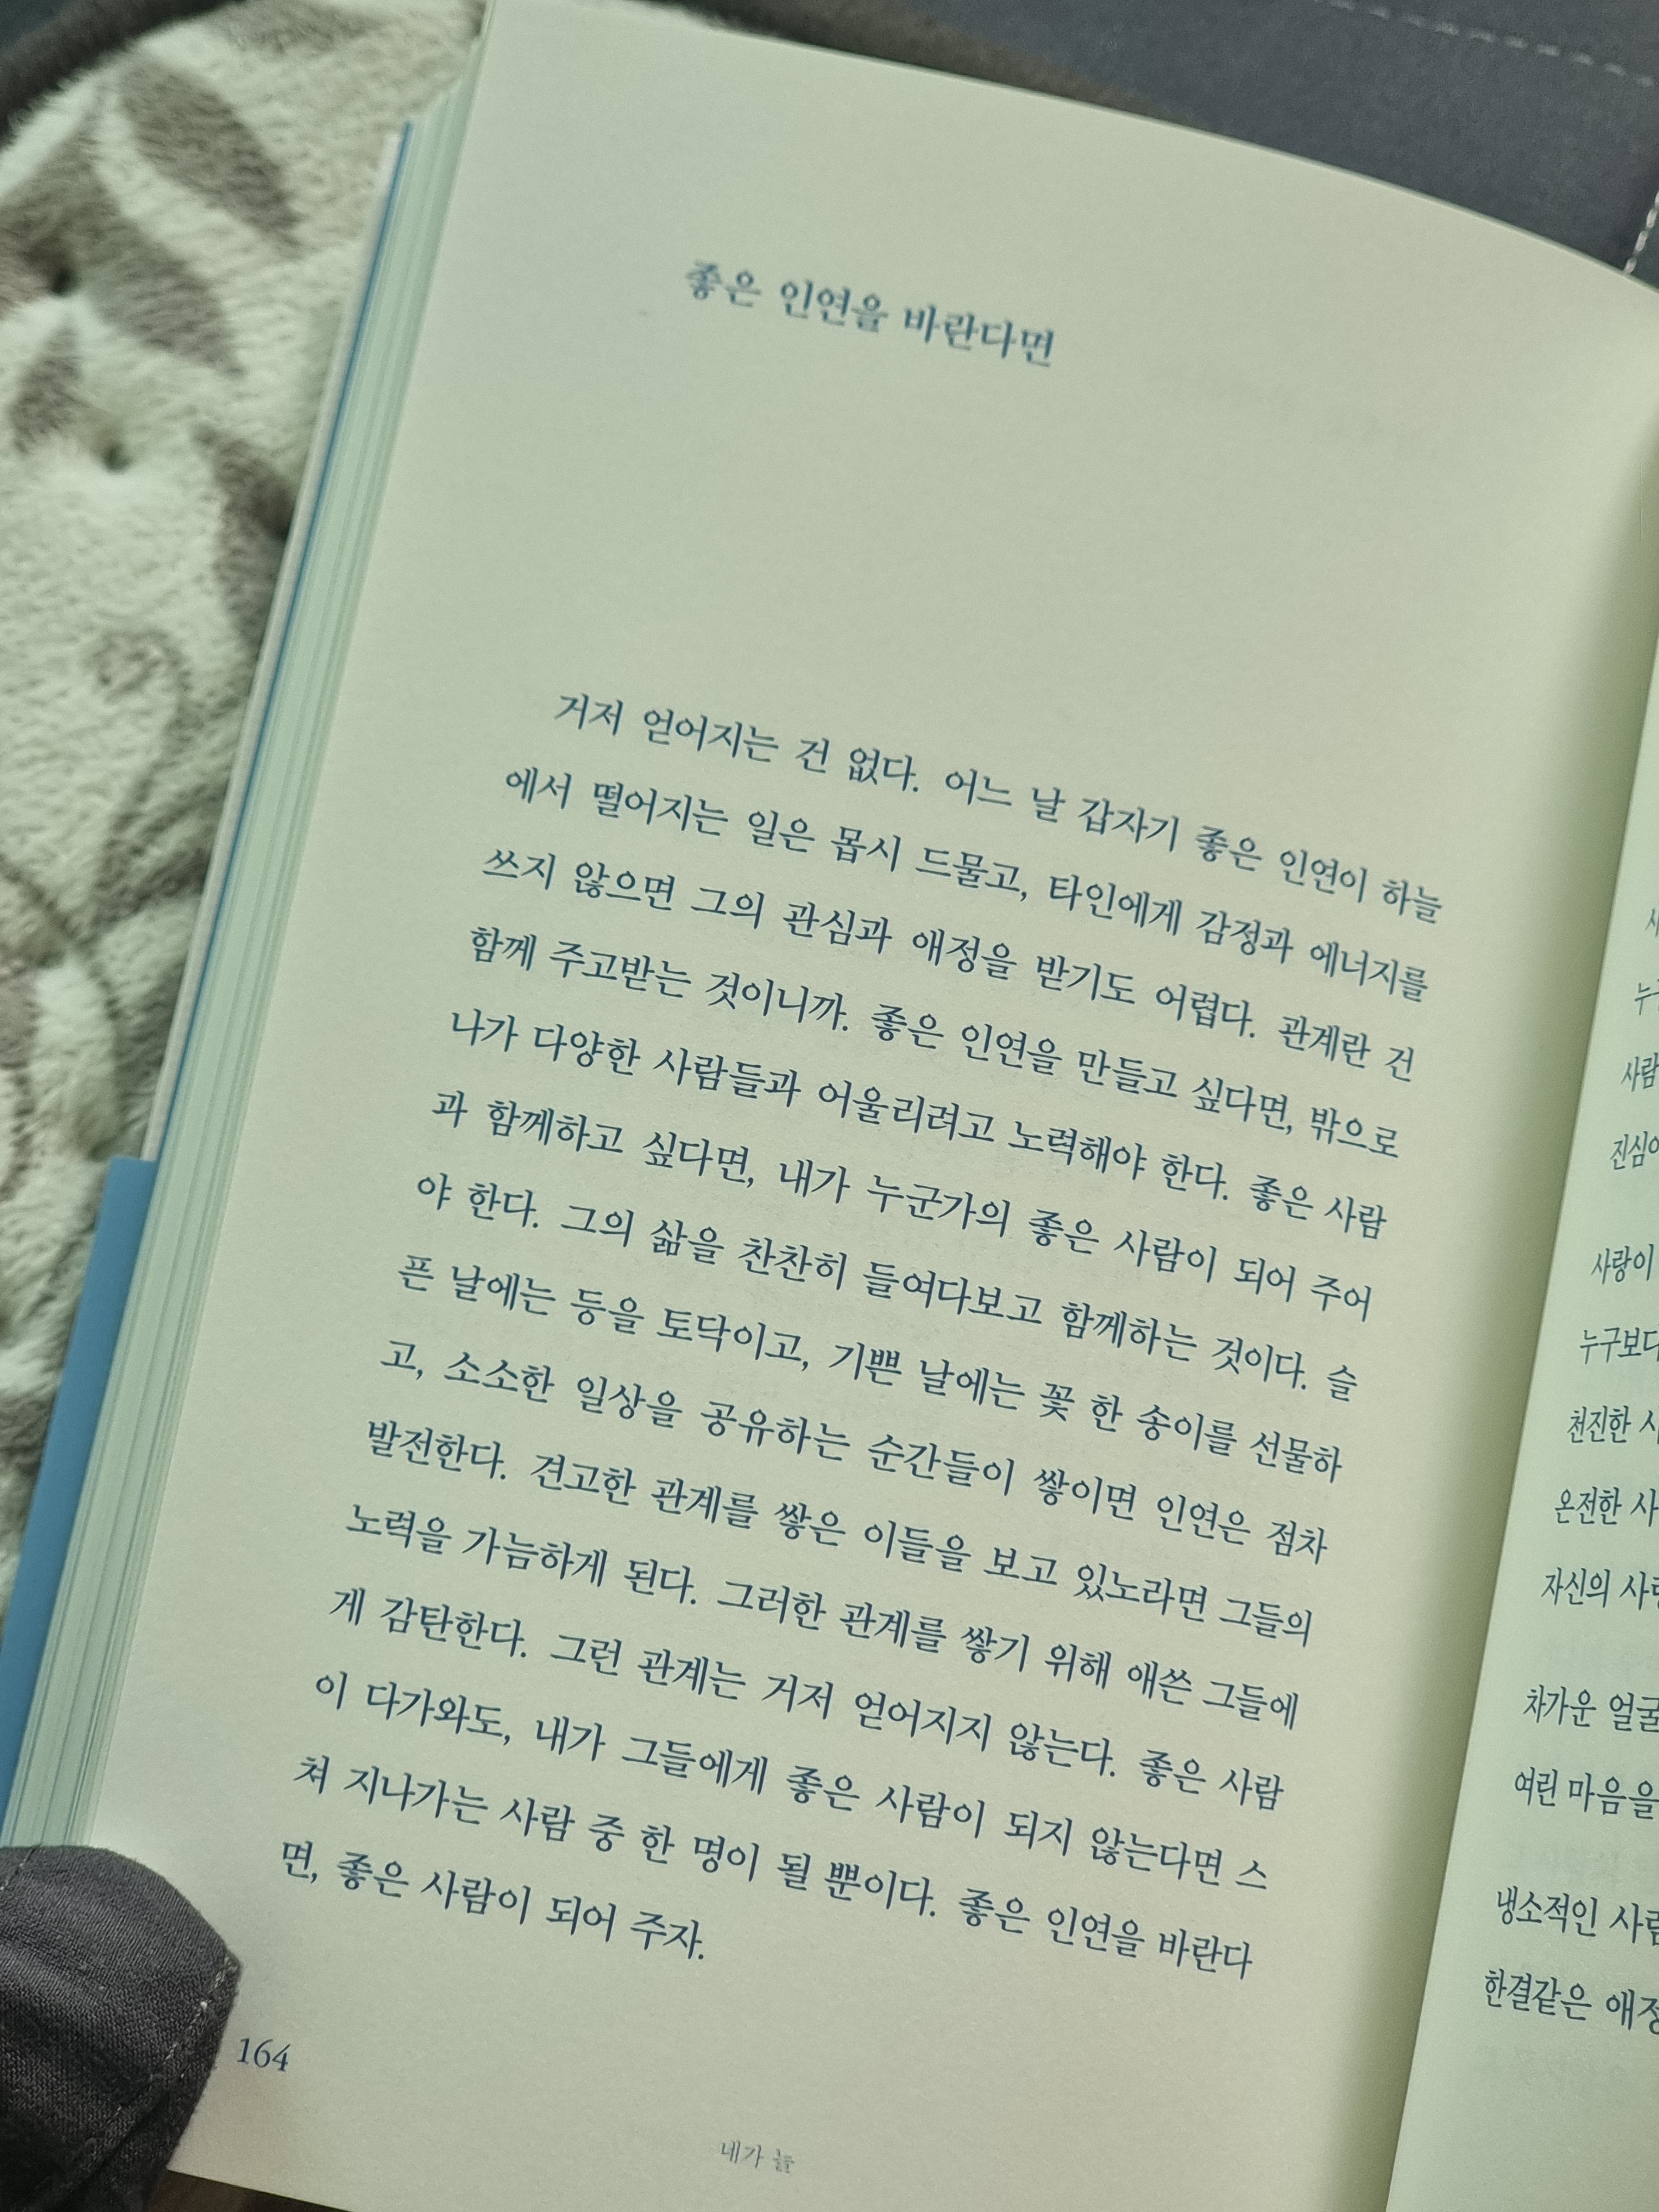 좋은 인연을 바란다면
거저 얻어지는 건 없다. 어느 날 갑자기 좋은 인연이 하늘
에서 떨어지는 일은 몹시 드물고, 타인에게 감정과 에너지를
쓰지 않으면 그의 관심과 애정을 받기도 어렵다. 관계란 건
함께 주고받는 것이니까. 좋은 인연을 만들고 싶다면, 밖으로
나가 다양한 사람들과 어울리려고 노력해야 한다. 좋은 사람
과 함께하고 싶다면, 내가 누군가의 좋은 사람이 되어 주어
야 한다. 그의 삶을 찬찬히 들여다보고 함께하는 것이다. 슬
픈 날에는 등을 토닥이고, 기쁜 날에는 꽃 한 송이를 선물하
고, 소소한 일상을 공유하는 순간들이 쌓이면 인연은 점차
발전한다. 견고한 관계를 쌓은 이들을 보고 있노라면 그들의
노력을 가늠하게 된다. 그러한 관계를 쌓기 위해 애쓴 그들에
게 감탄한다. 그런 관계는 거저 얻어지지 않는다. 좋은 사람
이 다가와도, 내가 그들에게 좋은 사람이 되지 않는다면 스
쳐 지나가는 사람 중 한 명이 될 뿐이다. 좋은 인연을 바란다
면, 좋은 사람이 되어 주자.
164
네가 늘
사람
사랑이
누구보다
천진한
온전한
자신의
차가운 얼굴
여린 마음을
냉소적인 사람
한결같은 애정